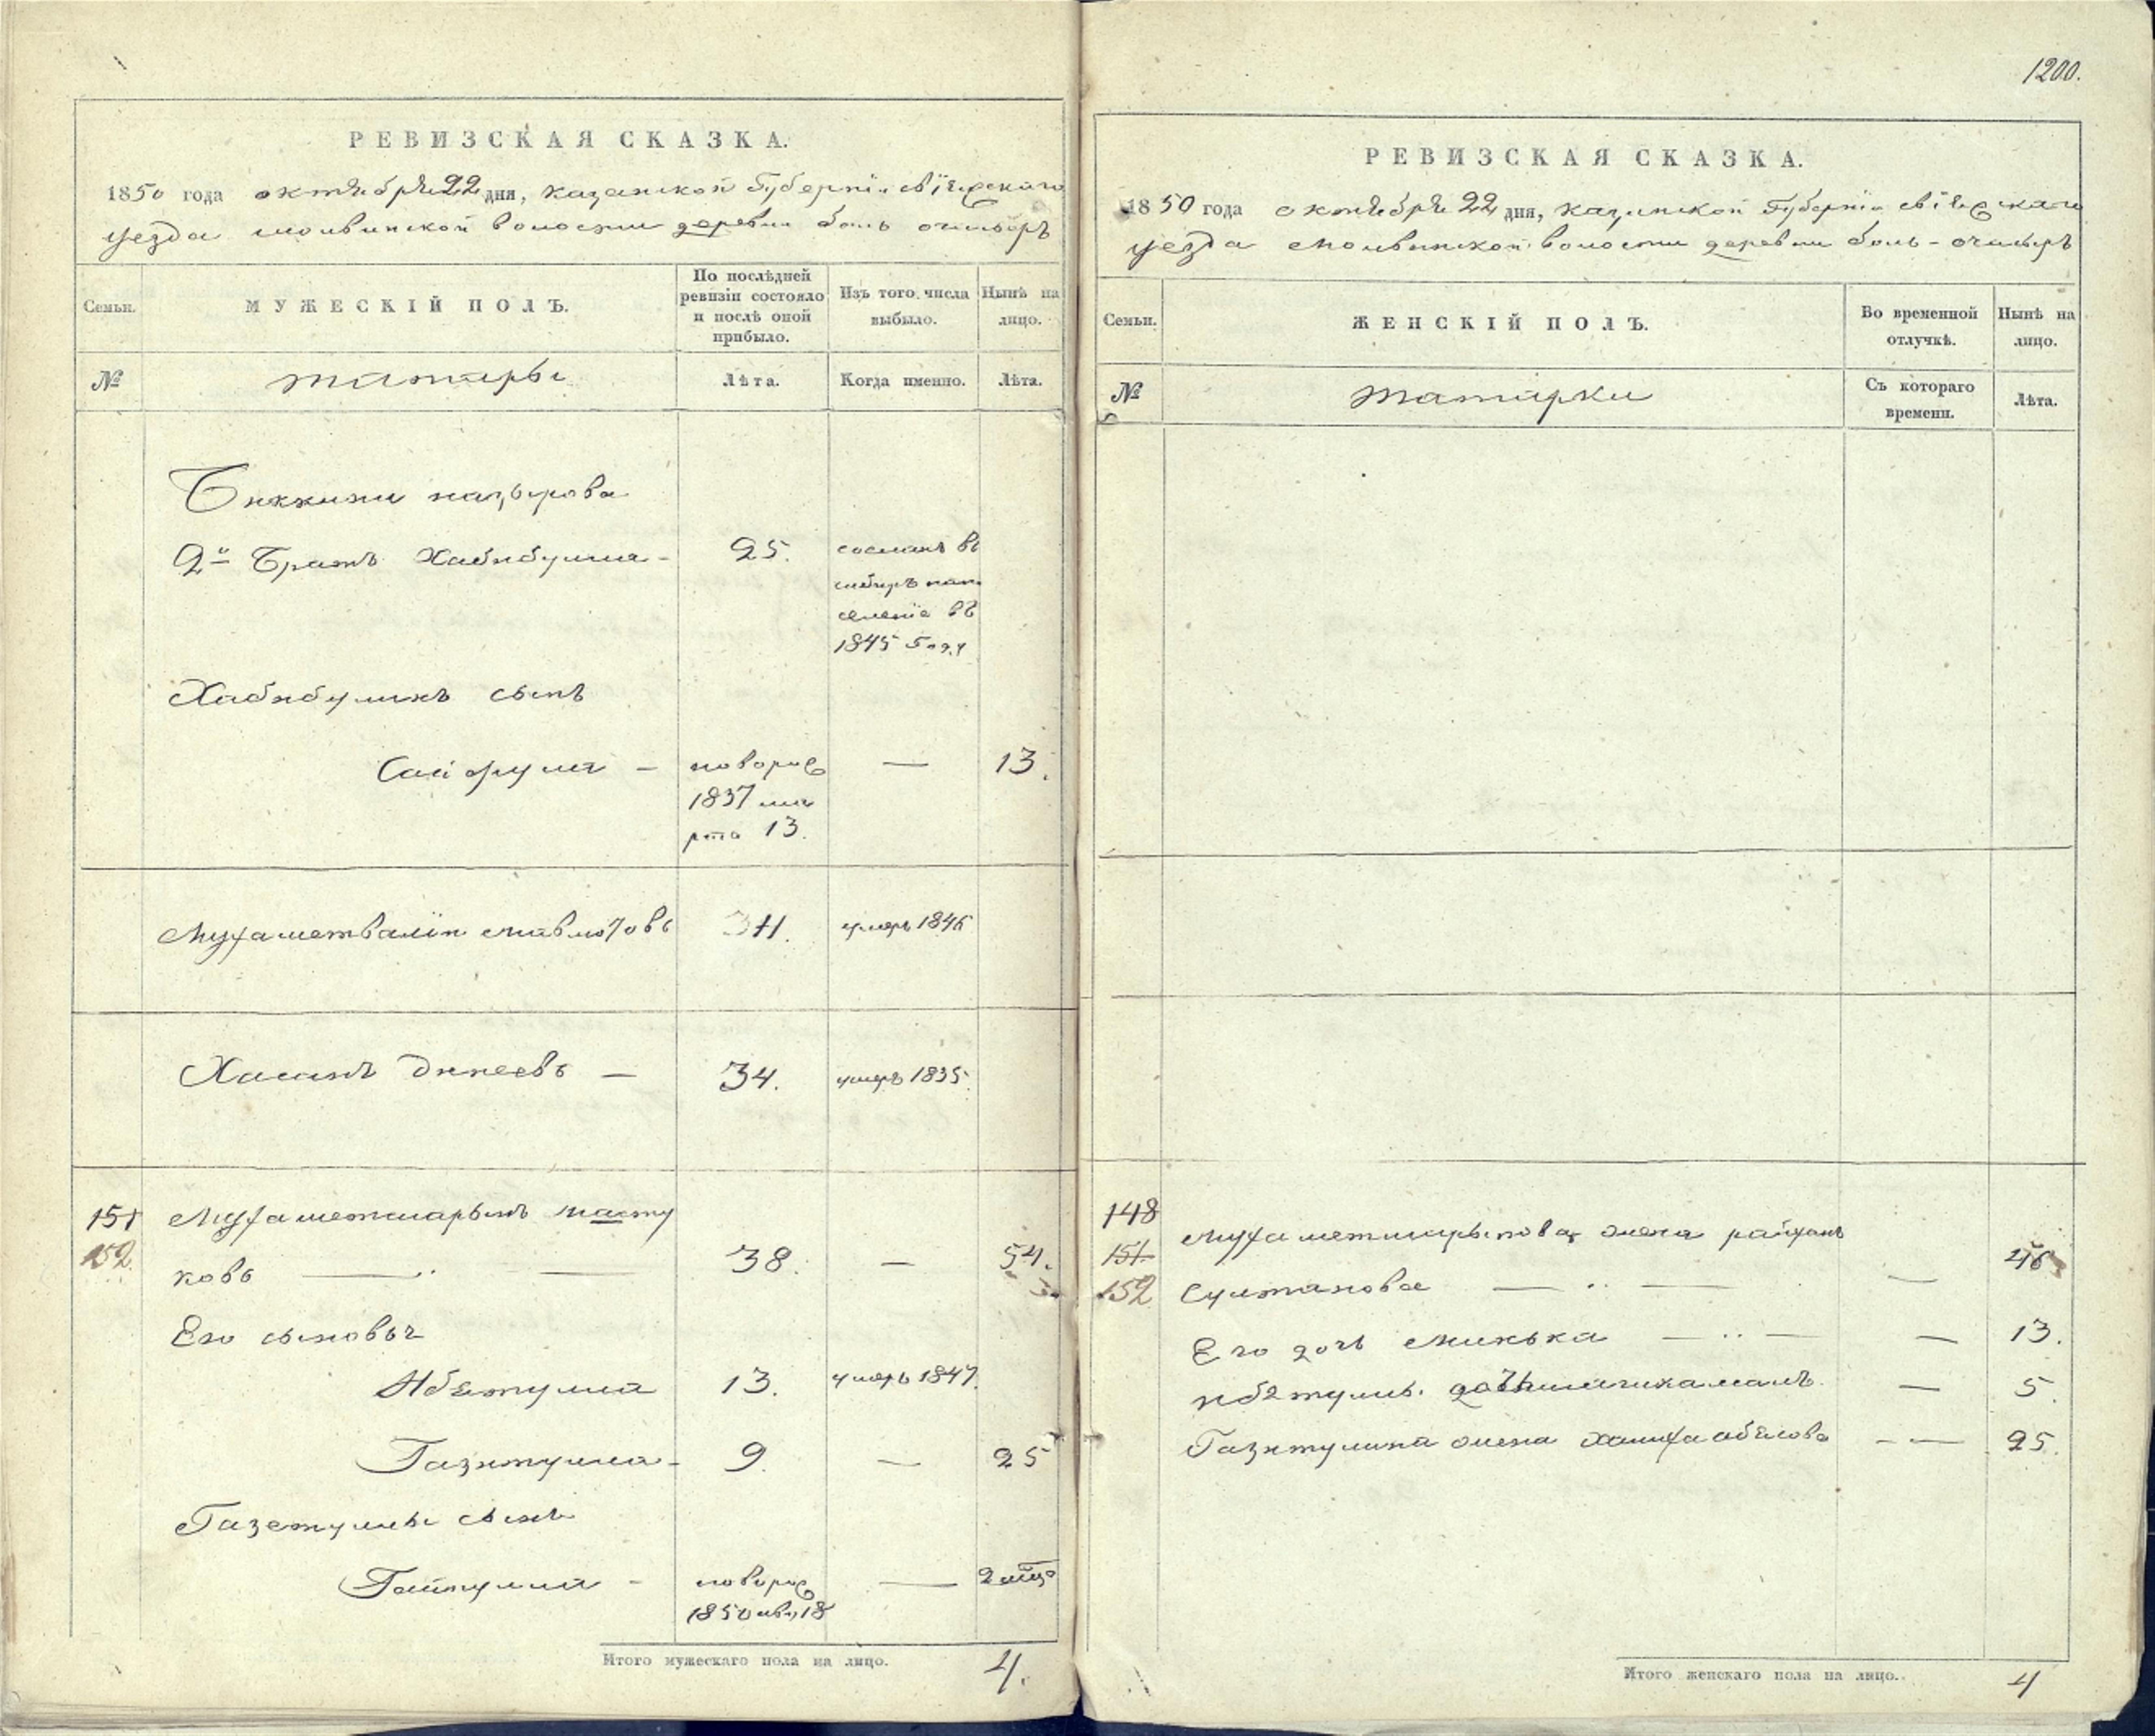 1200.
РЕВИЗСКАЯ СКАЗКА.
1850 года октября 22 дня, казанской губернiи свiяжскаго
уезда молвинской волости деревни боль очасыръ
Семьи.
МУЖЕСКІЙ ПОЛЪ.
По послѣдней
ревизіи состояло
и послѣ оной
прибыло.
Изъ того числа
выбыло.
Нынѣ на
лицо.
№
татары
Лѣта.
Когда именно.
Лѣта.
назырова
2й братъ Хабибулла - 25. сосланъ въ
сибирь на по
селенiе въ
1845 году
Хабибулинъ сынъ
Сайфулла - новорож
1837 ма
рта 13. — 13.
Мухаметвалiй мавлютовъ 34. умеръ 1846
Хасанъ Динеевъ — 34. умеръ 1835.
151 Мухаметшарыпъ масту
152. ковъ 38. — 54.
Его сыновья
Ибетулла 13. умеръ 1847.
Газетулла - 9. — 25
Газетуллы сынъ
новорож — 2
1850 18
Итого мужескаго пола на лицо. 4.
РЕВИЗСКАЯ СКАЗКА.
1850 года октября 22 дня, казанской губернiи свiяжскаго
уезда молвинской волости деревни боль-очасыръ
Семьи.
ЖЕНСКІЙ ПОЛЪ.
Во временной
отлучкѣ.
Нынѣ на
лицо.
№
татарки
Съ котораго
времени.
Лѣта.
148
151 Мухаметшарыпова жена райханъ
152 Султанова — 46
Его дочь — 13.
Ибетуллы дочь — 5.
Газетуллина жена — 25.
Итого женскаго пола на лицо. 4